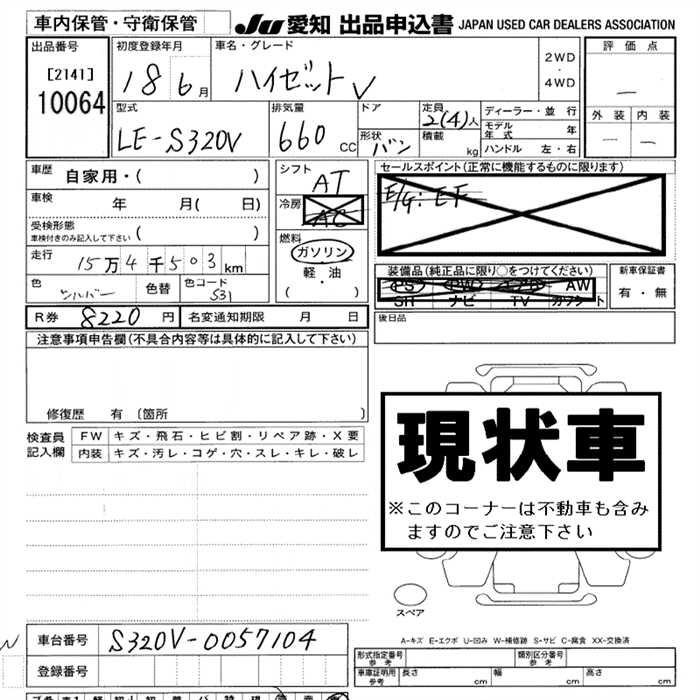 車内保管・守衛保管
JU 愛知 出品申込書 JAPAN USED CAR DEALERS ASSOCIATION
出品番号
[2141]
10064
初度登録年月
18 6月
車名・グレード
ハイゼット V
2WD
・
4WD
評価点
—
外装 内装
— —
型式
LE-S320V
排気量
660 CC
ドア
形状 バン
定員 2(4)人
積載 kg
ディーラー・並行
モデル年式 年
ハンドル 左・右
車歴 自家用・( )
車検 年 月( 日)
受検形態
車検付きのみ記入して下さい ( )
走行 15万4千503km
色 シルバー 色替 色コード S31
シフト AT
冷房 AC
燃料
ガソリン
軽・油
( ・ )
セールスポイント(正常に機能するものに限ります)
E/G: EF
装備品(純正品に限り〇をつけてください)
PS PW エアB AW
SR ナビ TV カワシート
新車保証書
有・無
R券 8220 円 名変通知期限 月 日
後日品
注意事項申告欄(不具合内容等は具体的に記入して下さい)
修復歴 有 〔箇所
検査員記入欄
FW キズ・飛石・ヒビ割・リペア跡・X要
内装 キズ・汚レ・コゲ・穴・スレ・キレ・破レ
現状車
※このコーナーは不動車も含み
ますのでご注意下さい
スペア
A-キズ E-エクボ U-凹み W-補修跡 S-サビ C-腐食 XX-交換済
車台番号 S320V-0057104
登録番号
形式指定番号 参考
類別区分番号 参考
車庫証明用 参考 長さ cm 幅 cm 高さ cm